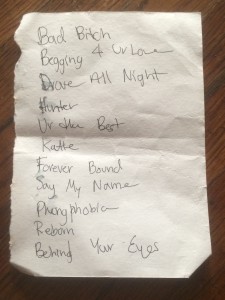 Bad Bitch
Begging 4 Ur Love
Drove All Night
Hunter
Ur the Best
Forever Bound
Say My Name
Phonyphobia
Reborn
Behind Your Eyes